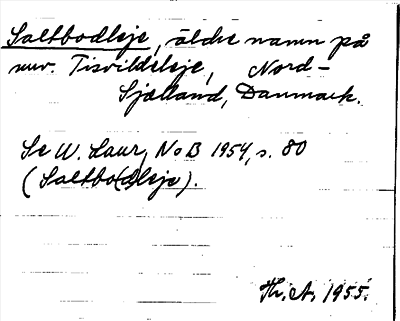 Saltbodleje, äldre namn på
nuv. Tisvildeleje, Nord-
Sjælland, Danmark.
Se W. Laur, NoB 1954, s. 80
(Saltbo(d)leje).
Th. A. 1955.